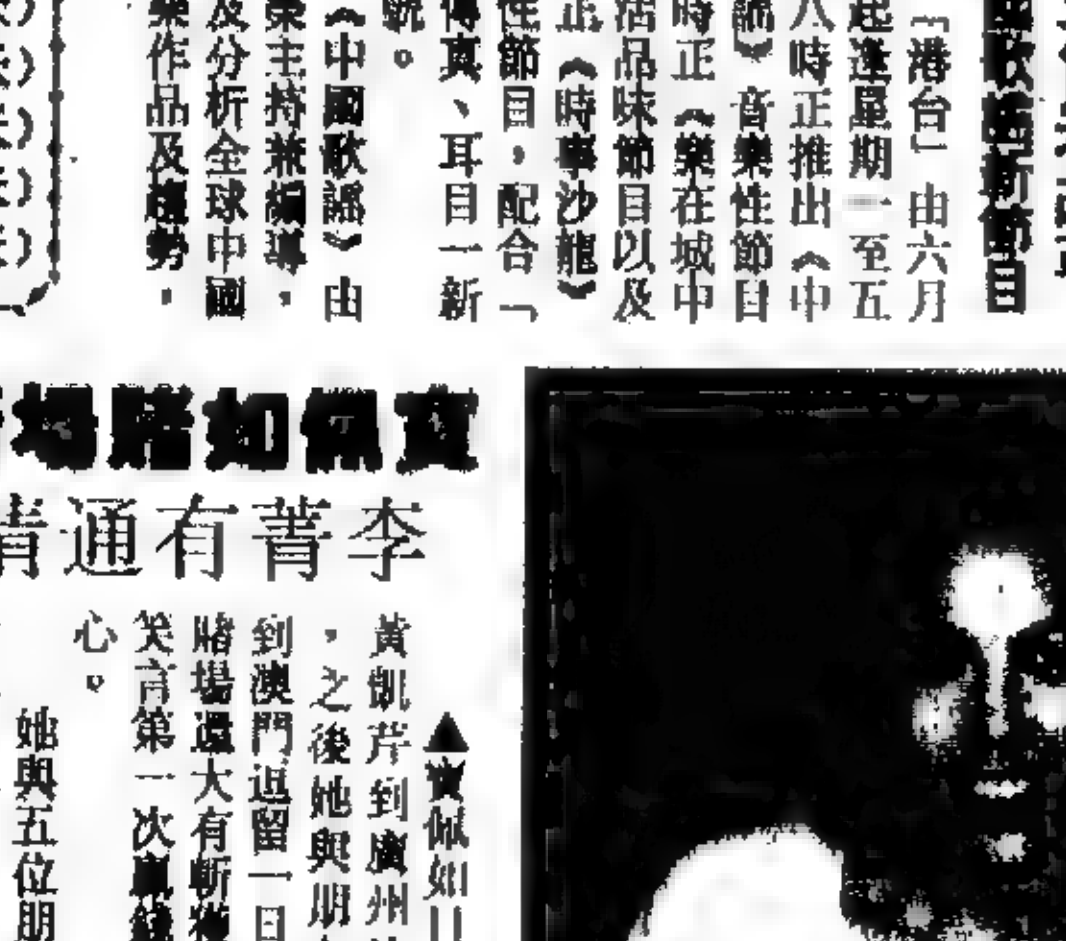 節目
「港台」由六月
起逢星期一至五
八時正推出《中
謠》音樂性節目
時正《樂在城中
活品味節目以及
正《時事沙龍》
性節目，配合「
傳真、耳目一新
《中國歌謠》由
樂主持兼編導，
及分析全球中國
樂作品及趨勢，
寶佩如賭場
李菁有通
▲寶佩如
黃凱芹到廣州
，之後她與朋
到澳門逗留一日
賭場還大有斬獲
笑言第一次贏錢
心。
她與五位朋